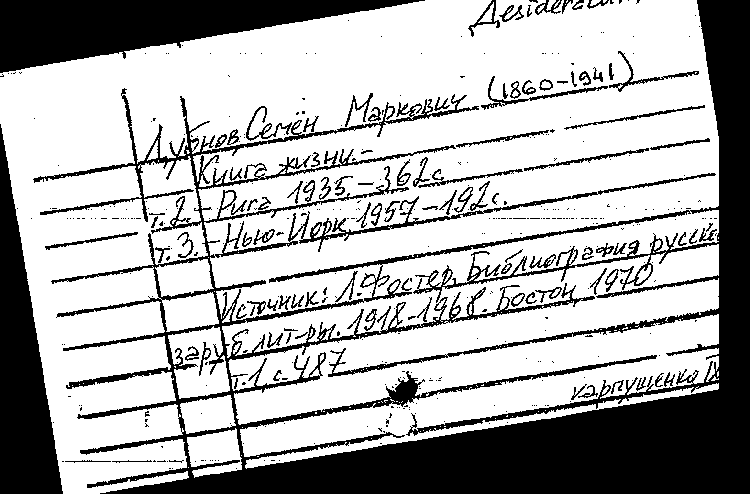 Desideratum
Дубнов, Семён Маркович (1860-1941)
Книга жизни.-
т.2.-Рига, 1935.-362с.
т.3.-Нью-Йорк, 1957.-192с.
Источник: Л.Фостер. Библиография русско
заруб.лит-ры. 1918-1968. Бостон, 1970
т.1, с.487
карпущенко, IX